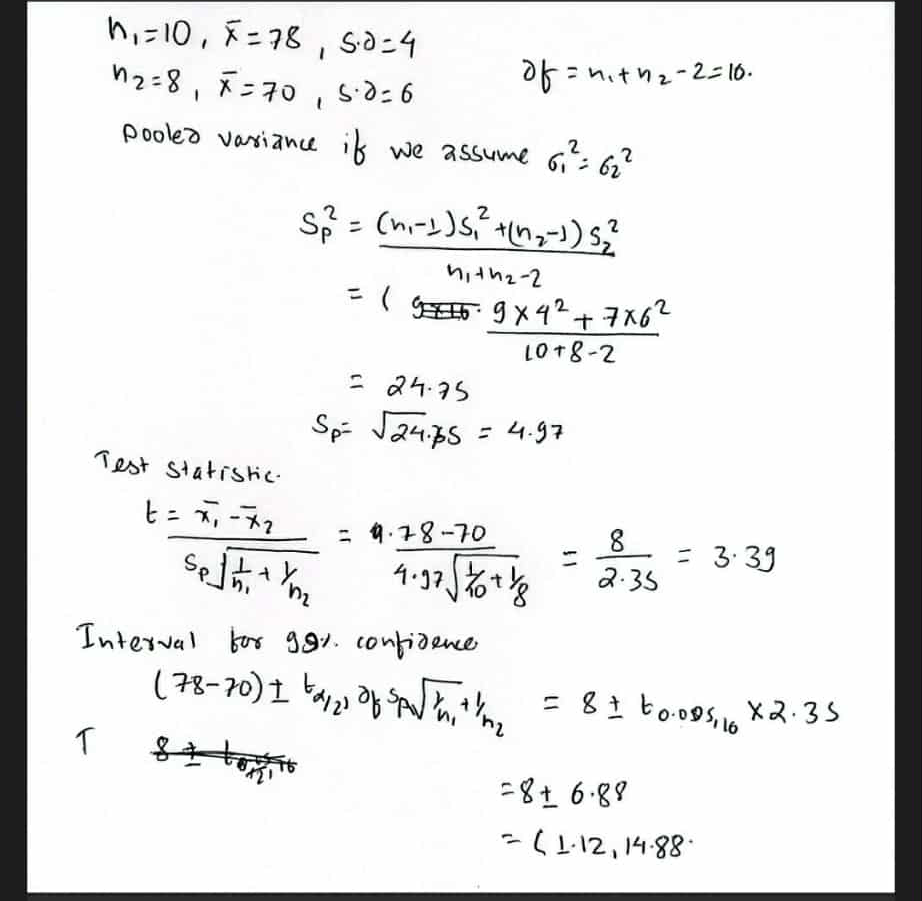 n₁=10, x̄=78, s.d=4
n₂=8, x̄=70, s.d=6
df = n₁+n₂-2=16.
Pooled variance if we assume σ₁²=σ₂²
Sp² = (n₁-1)S₁²+(n₂-1)S₂² / n₁+n₂-2
= ( 9×4²+7×6² / 10+8-2
= 24.75
Sp= √24.75 = 4.97
Test statistic.
t = x̄₁-x̄₂ / Sp√1/n₁+1/n₂ = 78-70 / 4.97√1/10+1/8 = 8 / 2.35 = 3.39
Interval for 99%. confidence
(78-70)± tα/2, df Sp√1/n₁+1/n₂ = 8 ± t0.005,16 ×2.35
T
=8± 6.88
= (1.12, 14.88.